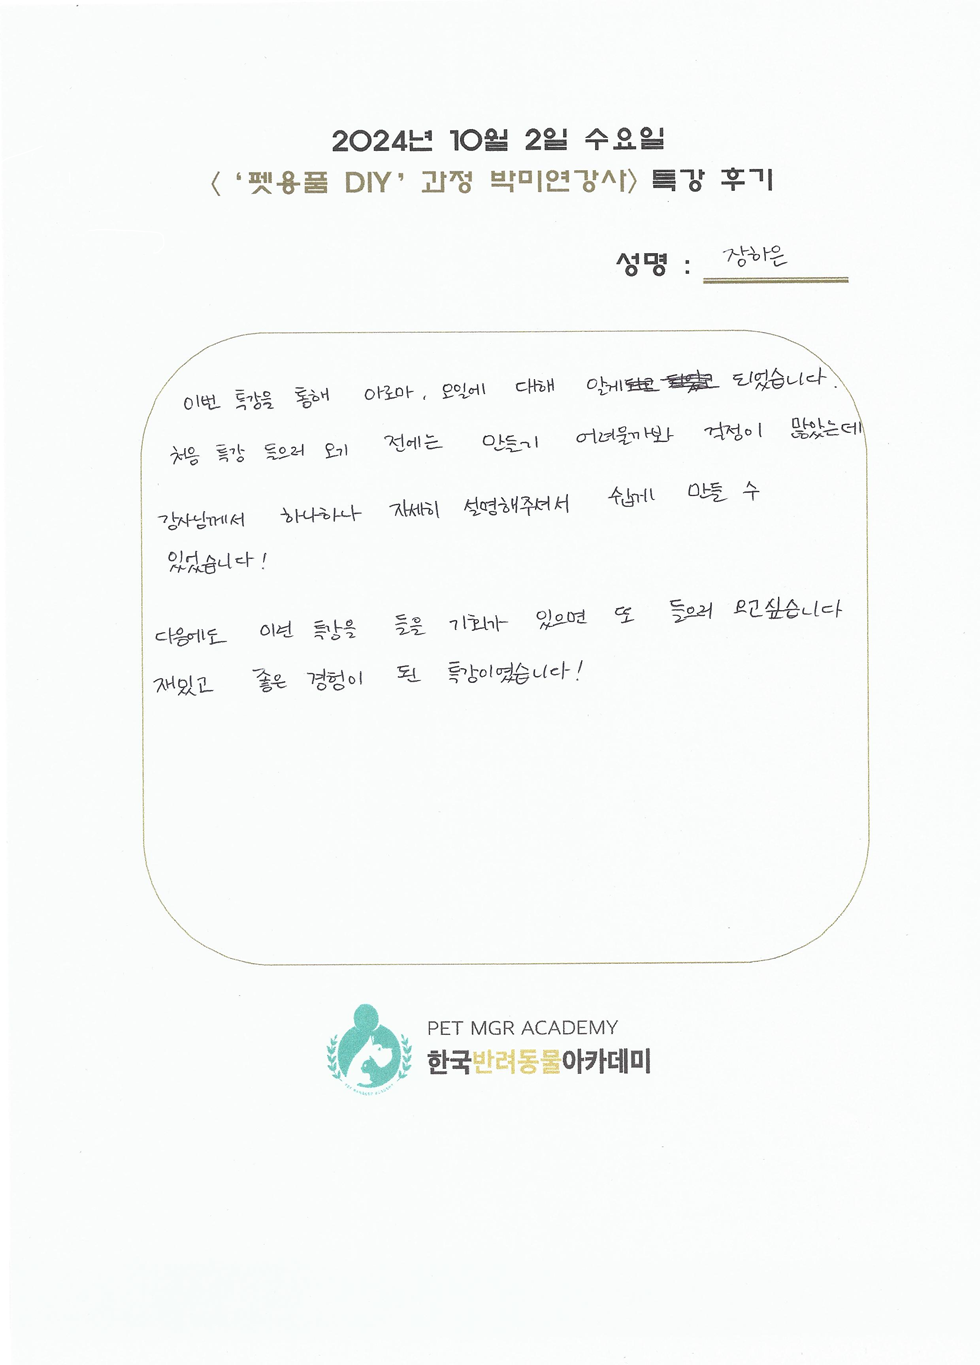 2024년 10월 2일 수요일
〈 ‘펫용품 DIY’ 과정 박미연강사〉 특강 후기
성명 : 장하은
이번 특강을 통해 아로마, 오일에 대해 알게 되었습니다.
처음 특강 들으러 오기 전에는 만들기 어려울까봐 걱정이 많았는데
강사님께서 하나하나 자세히 설명해주셔서 쉽게 만들 수
있었습니다!
다음에도 이런 특강을 들을 기회가 있으면 또 들으러 오고싶습니다
재밌고 좋은 경험이 된 특강이였습니다!
PET MGR ACADEMY
한국반려동물아카데미